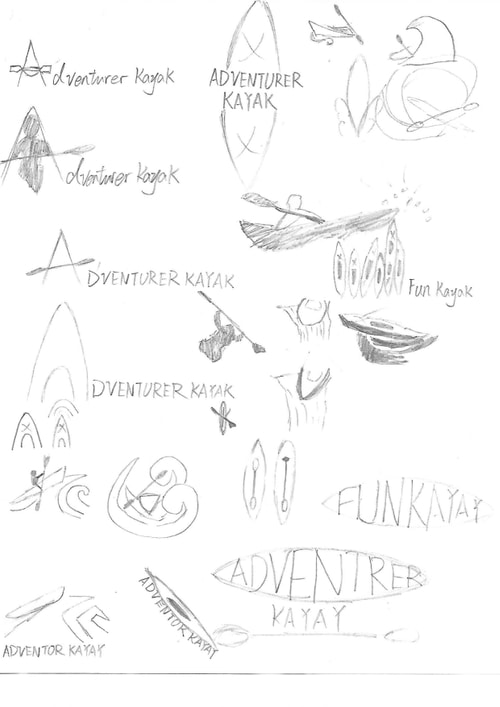 A'dventurer Kayak
ADVENTURER
KAYAK
Adventurer Kayak
AD'VENTURER KAYAK
Fun Kayak
ADVENTURER KAYAK
FUNKAYAY
ADVENTRER
KAYAY
ADVENTOR KAYAY
ADVENTOR KAYAY